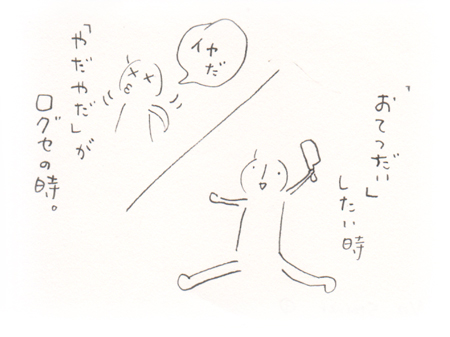 「おてつだい」
したい時
イヤ
だ
「やだやだ」が
口グセの時。